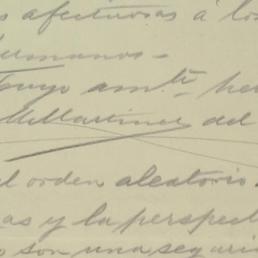 s afectuosas á los
humanos -
Tuyo amte. her
M. Martinez del
el orden aleatorio.
as y la perspect
o son una seguri